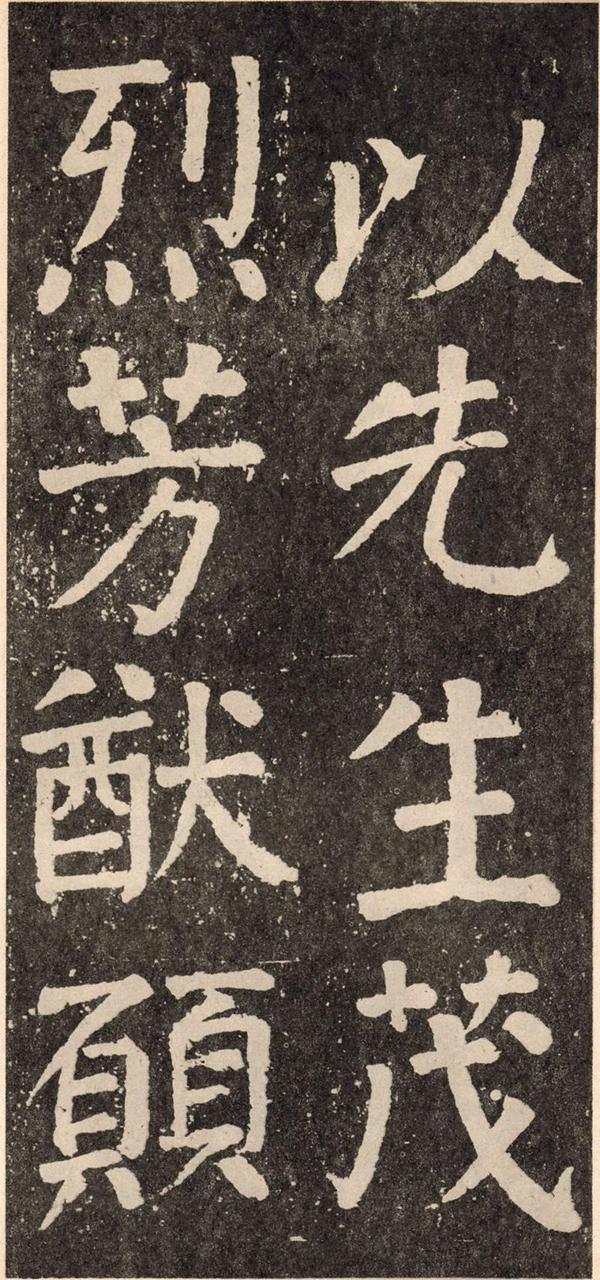 以先生茂
烈芳猷願